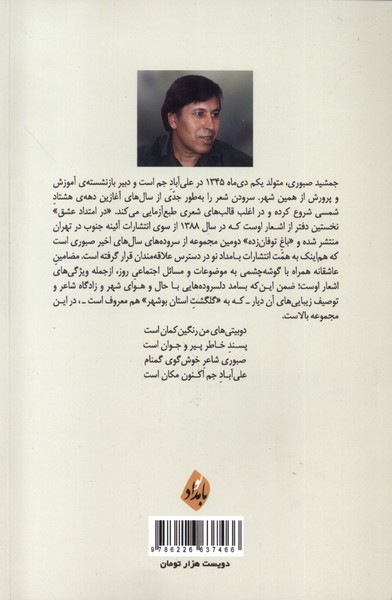 جمشید صبوری، متولد یکم دی‌ماه ۱۳۴۵ در علی‌آبادِ جم است و دبیر بازنشسته‌ی آموزش
و پرورش از همین شهر. سرودن شعر را به‌طور جدّی از سال‌های آغازین دهه‌ی هشتادِ
شمسی شروع کرده و در اغلب قالب‌های شعری طبع‌آزمایی می‌کند. «در امتداد عشق»
نخستین دفتر از اشعار اوست که در سال ۱۳۸۸ از سوی انتشارات آئینه جنوب در تهران
منتشر شده و «باغِ توفان‌زده» دومین مجموعه از سروده‌های سال‌های اخیر صبوری است
که هم‌اینک به همّت انتشارات بامداد نو در دسترس علاقه‌مندان قرار گرفته است. مضامینِ
عاشقانه همراه با گوشه‌چشمی به موضوعات و مسائل اجتماعیِ روز، ازجمله ویژگی‌های
اشعار اوست؛ ضمن این که بسامد دلسروده‌هایی با حال و هوای شهر و زادگاه شاعر و
توصیف زیبایی‌های آن دیار ـ که به «گلگشتِ استان بوشهر» هم معروف است ـ، در این
مجموعه بالاست.
دوبیتی‌های من رنگین کمان است
پسندِ خاطر پیر و جوان است
صبوری شاعرِ خوش‌گوی گمنام
علی‌آبادِ جم اکنون مکان است
بامداد
9 786226 637466
دویست هزار تومان